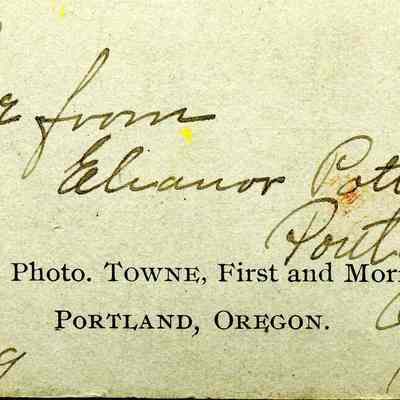 from
Eleanor Pott
Portl
Photo. TOWNE, First and Morr
PORTLAND, OREGON.